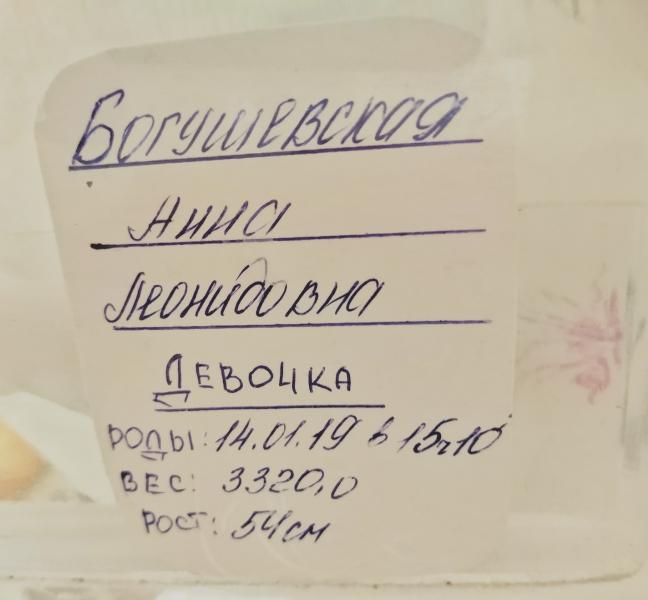 Богушевская
Анна
Леонидовна
ДЕВОЧКА
РОДЫ: 14.01.19 в 15ч10'
ВЕС: 3320,0
РОСТ: 54см